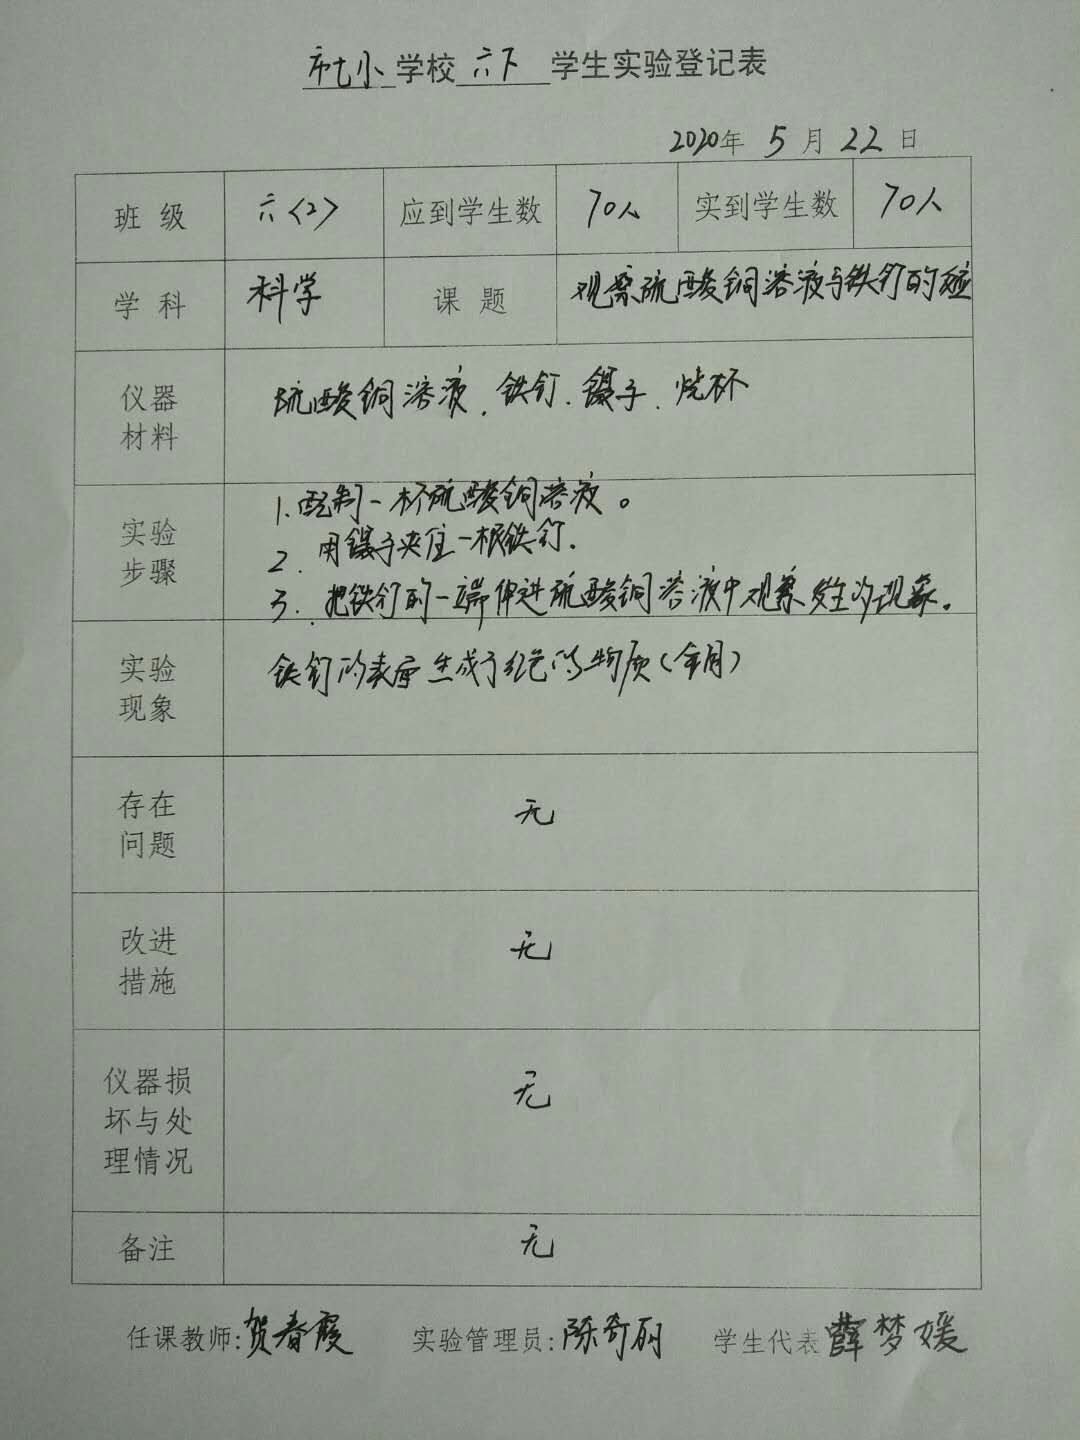 市七小学校六下 学生实验登记表
2020年 5 月 22 日
班 级 六〈2〉 应到学生数 70人 实到学生数 70人
学 科 科学 课 题 观察硫酸铜溶液与铁钉的
仪器 材料 硫酸铜溶液、铁钉、镊子、烧杯
实验 步骤
1.配制一杯硫酸铜溶液。
2.用镊子夹住一根铁钉.
3.把铁钉的一端伸进硫酸铜溶液中观察发生的现象。
实验 现象 铁钉的表面生成了红色的物质(铜)
存在 问题 无
改进 措施 无
仪器损 坏与处 理情况 无
备注 无
任课教师:贺春霞 实验管理员:陈奇丽 学生代表薛梦媛